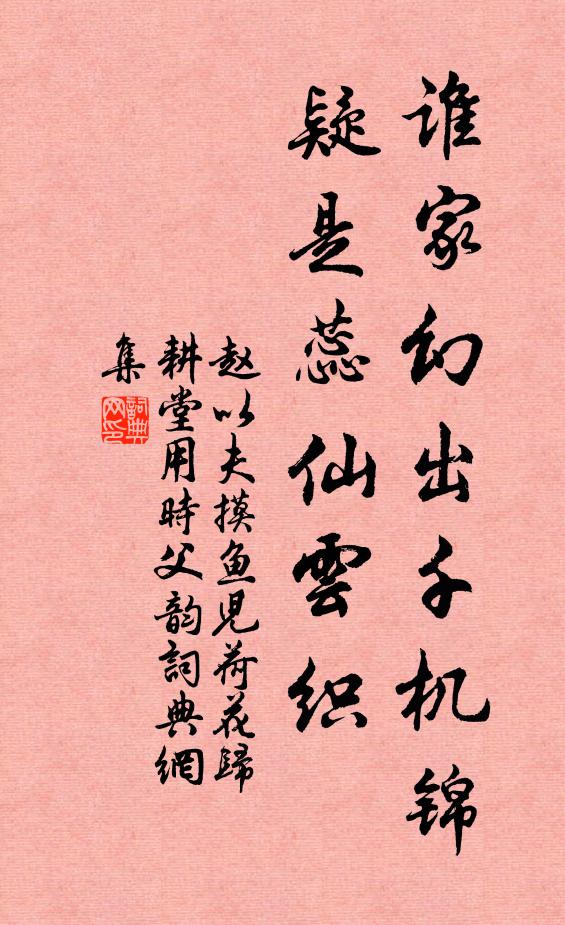 谁家幻出千机锦
疑是蕊仙雲织
赵以夫摸鱼児荷花歸
耕堂用時父韵詞典網
集
詞典
网印